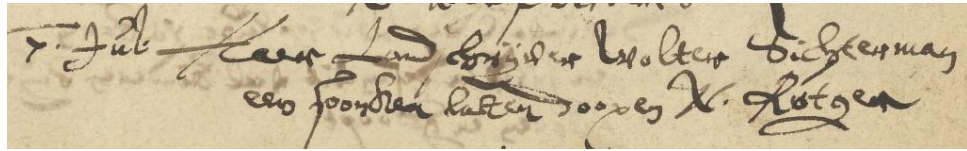 7. Jul. Heer Land schrijver Wolter Sichterman
een soonken laeten doopen N. Rotger